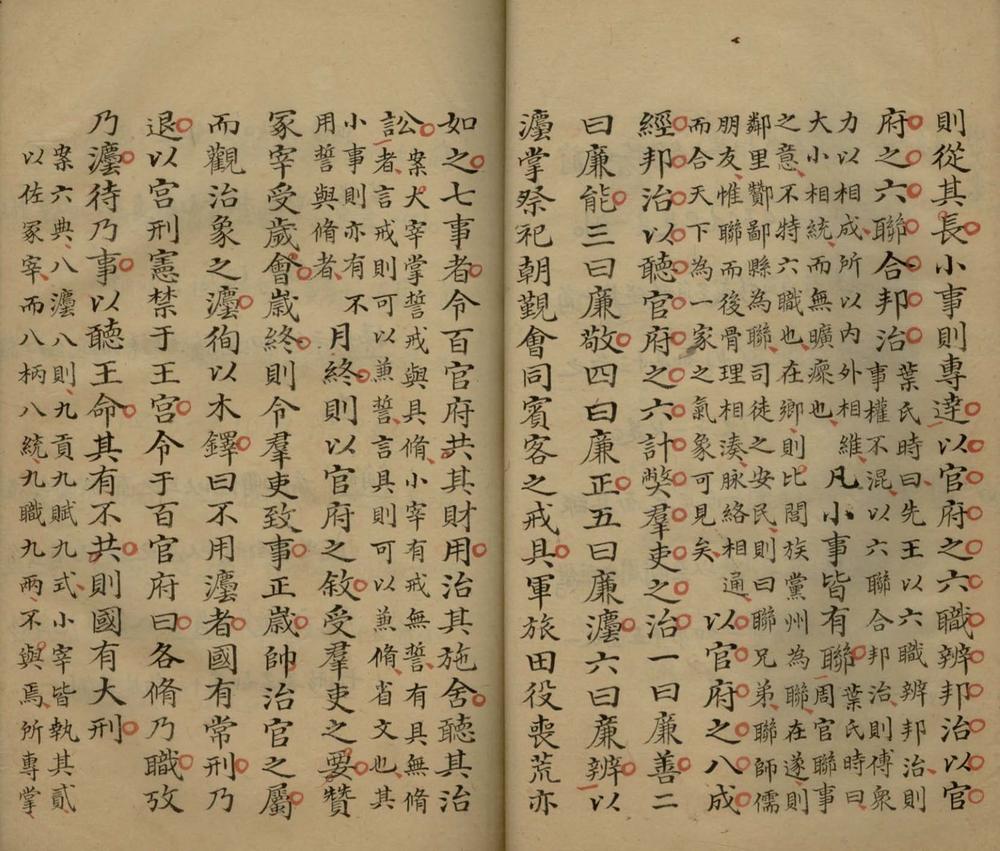 則從其長小事則專達以官府之六職辨邦治以官
府之六聯合邦治
葉氏時曰先王以六職辨邦治則
事權不混以六聯合邦治則傅衆
力以相成所以內外相維
大小相統而無曠瘝也
凡小事皆有聯
葉氏時曰
周官聯事
之意不特六職也在鄉則比閭族黨州為聯在遂則
鄰里酇鄙縣為聯司徒之安民則曰聯兄弟聯師儒
朋友惟聯而後骨理相湊脈絡相通
而合天下為一家之氣象可見矣
以官府之八成
經邦治以聽官府之六計弊羣吏之治一曰廉善二
曰廉能三曰廉敬四曰廉正五曰廉灋六曰廉辨以
灋掌祭祀朝覲會同賓客之戒具軍旅田役喪荒亦
如之七事者令百官府共其財用治其施舍聽其治
訟
案大宰掌誓戒與具脩小宰有戒無誓有具無脩
者言戒則可以兼誓言具則可以兼脩省文也其
小事則亦有不
用誓與脩者
月終則以官府之敘受羣吏之要贊
冢宰受歲會歲終則令羣吏致事正歲帥治官之屬
而觀治象之灋徇以木鐸曰不用灋者國有常刑乃
退以宮刑憲禁于王宮令于百官府曰各脩乃職攷
乃灋待乃事以聽王命其有不共則國有大刑
案六典八灋八則九貢九賦九式小宰皆執其貳
以佐冢宰而八柄八統九職九兩不與焉所專掌